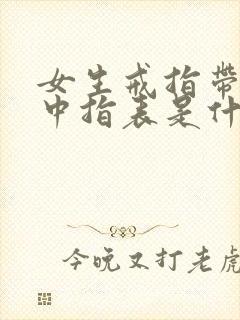 女生戒指带
中指表是什
今晚又打老虎